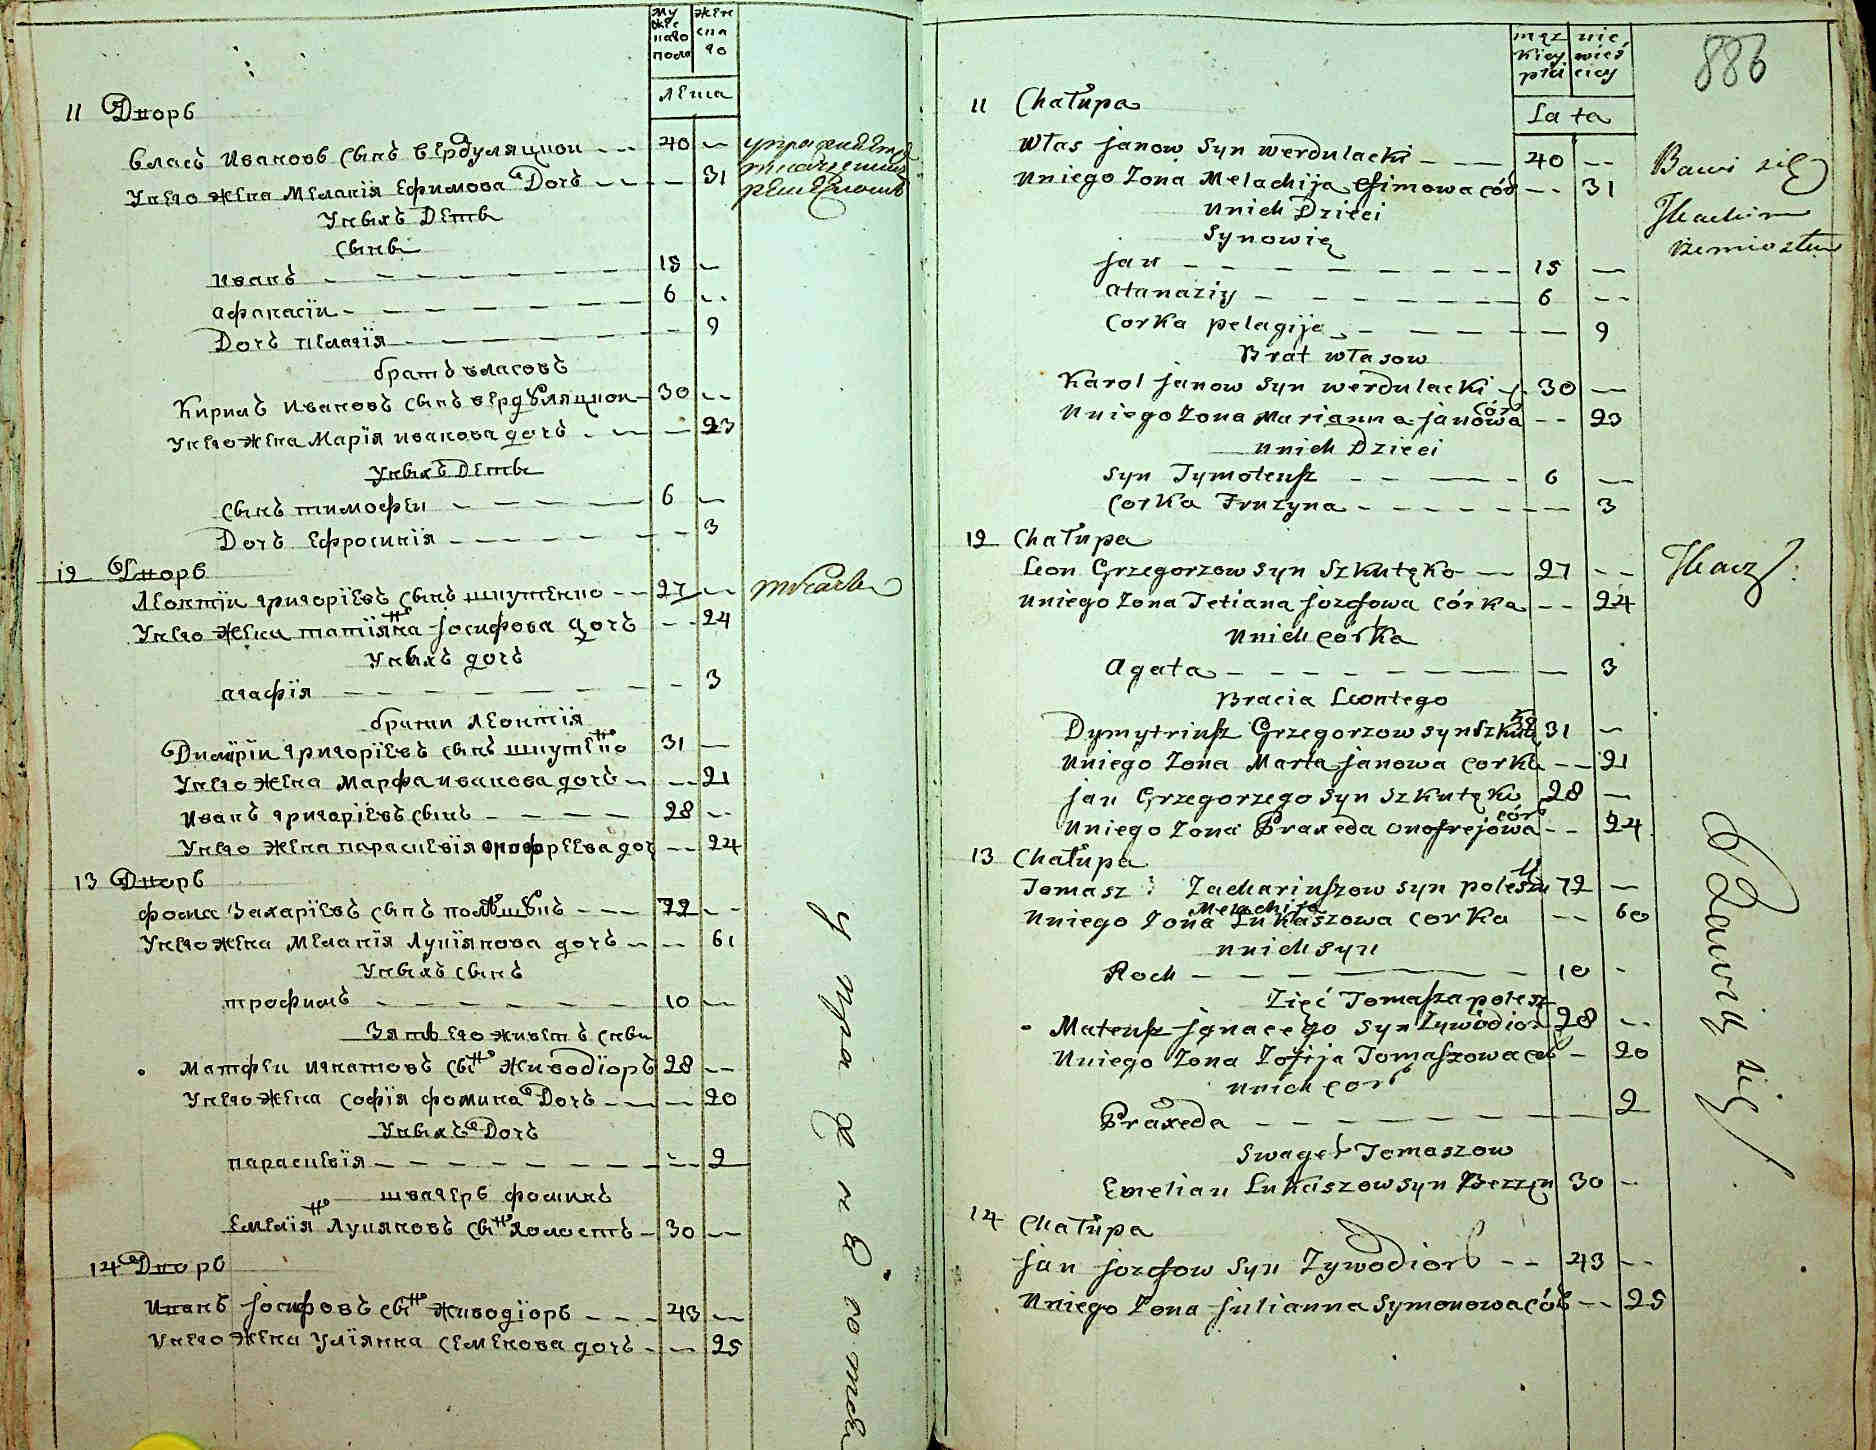 Му жес каго полу
женс ска го
лета
11 Дворъ
Власъ Ивановъ сынъ вердуляцкои 40
У него жена Меланія Ефимова дочь 31
упражняется ткацкимъ ремесломъ
У нихъ дети
сыны
Иванъ 15
Афанасіи 6
Дочь пелагія 9
братъ власовъ
Кирилъ Ивановъ сынъ вердуляцкои 30
У него жена Марія Иванова дочь 23
У нихъ дети
сынъ тимофеи 6
Дочь Ефросинія 3
12 Дворъ
Леонтіи григоріевъ сынъ шкутенко 27 ткачъ
У него жена татіяна Іосифова дочь 24
У нихъ дочь
агафія 3
братя леонтія
Димитріи григоріевъ сынъ шкутенко 31
У него жена марфа иванова дочь 21
Иванъ григоріевъ сынъ 28
У него жена параскевія онофреева доч 24
13 Дворъ
фома Захаріевъ сынъ полѣшукъ 72
У него жена Меланія Лукіянова дочь 61
У нихъ сынъ
трофимъ 10
Зять его живетъ с ним
Матфеи игнатовъ сынъ живодіоръ 28
У него жена софія фомина дочь 20
У нихъ дочь
параскевія 2
швагеръ фоминъ
Емеліян Лукяновъ сын холостъ 30
14 Дворъ
Иванъ Іосифовъ сын живодіоръ 43
У него жена Уліянна семенова дочь 25
męz kiey płci
nie wieś ciey
La ta
886
11 Chałupa
Włas Janow Syn werdulacki 40
Uniego Zona Melachija Efimowa cór 31
Bawi się Tkackim rzemiosłem
Unich Dzieci
Synowie
Jan 15
Atanaziy 6
Corka pelagija 9
Brat Własow
Karol Janow Syn werdulacki 30
Uniego Zona Marianna Janowa cór 23
Unich Dzieci
Syn Tymoteusz 6
Corka Fruzyna 3
12 Chałupa
Leon Grzegorzow Syn Szkutęko 27 Tkacz
Uniego Zona Tetiana Jozefowa córka 24
Unich córka
Agata 3
Bracia Leontego
Dymytriusz Grzegorzow Syn Szkutę ko 31
Uniego Zona Marta Janowa corka 21
Jan Grzegorzego Syn Szkutęko 28
Uniego Zona Praxeda Onofrejowa cór 24
13 Chałupa
Tomasz Zachariuszow Syn poleszu 72
Uniego Zona Melachija Lukaszowa corka 60
Unich Syn
Roch 10
Zięć Tomasza polesz
Mateusz Jgnacego Syn Zywodior 28
Uniego Zona Zofija Tomaszowa cor 20
Unich cor
Praxeda 2
Swager Tomaszow
Emelian Lukaszow Syn Bezzen 30
14 Chałupa
Jan Jozefow Syn Zywodior 43
Uniego Zona Julianna Symonowa cór 25
się